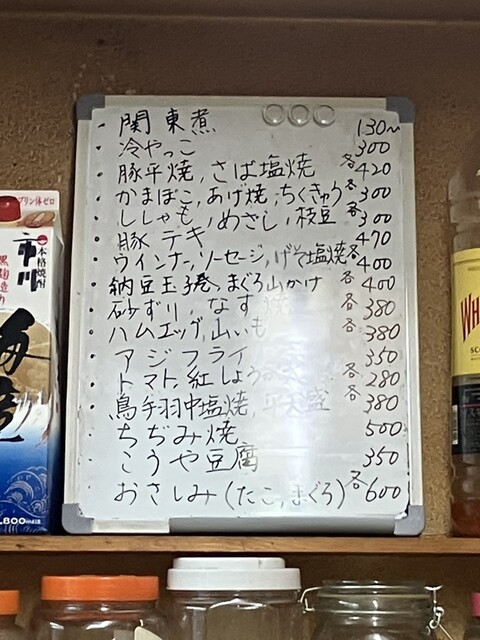 関東煮 130〜
冷やっこ 300
豚平焼, さば塩焼 各420
かまぼこ, あげ焼, ちくきゅう 各300
ししゃも, めざし, 枝豆 各300
豚テキ 470
ウインナ, ソーセージ, げそ塩焼 各400
納豆玉子巻, まぐろ山かけ 各400
砂ずり, なす 各380
ハムエッグ, 山いも 各380
アジフライ 350
トマト, 紅しょう 各280
鳥手羽中塩焼, 平天 各380
ちぢみ焼 500
こうや豆腐 350
おさしみ (たこ, まぐろ) 各600
プリン体ゼロ
本格焼酎
市川
黒麹造り
1,800ml
WH
SC